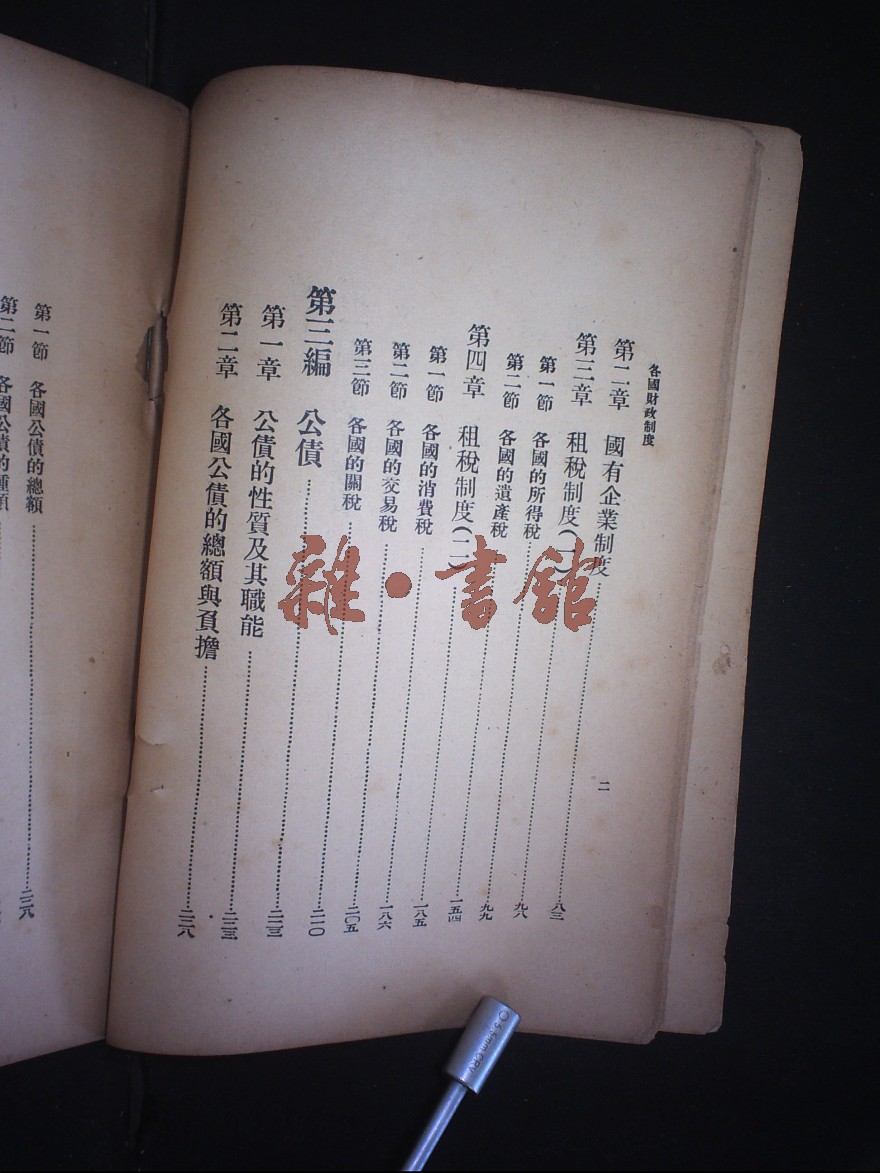 各國財政制度
二
第二章 國有企業制度……八三
第三章 租稅制度(一)……九八
第一節 各國的所得稅……九九
第二節 各國的遺產稅……一五四
第四章 租稅制度(二)……一八五
第一節 各國的消費稅……一八六
第二節 各國的交易稅……二〇五
第三節 各國的關稅……二一〇
第三編 公債……二二三
第一章 公債的性質及其職能……二二三
第二章 各國公債的總額與負擔……二三八
第一節 各國公債的總額……二三八
第二節 各國公債的種類
雜·書館
5.5mm CRV